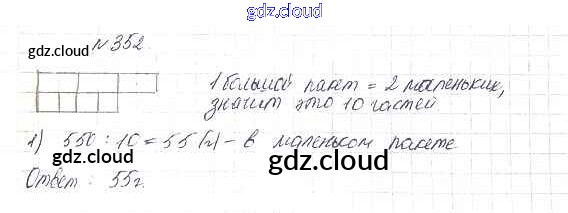 gdz.cloud
gdz.cloud
№ 352.
1 большой пакет = 2 маленьких,
значит это 10 частей
gdz.cloud
1) 550 : 10 = 55 (г) - в маленьком пакете
gdz.cloud
Ответ : 55г.